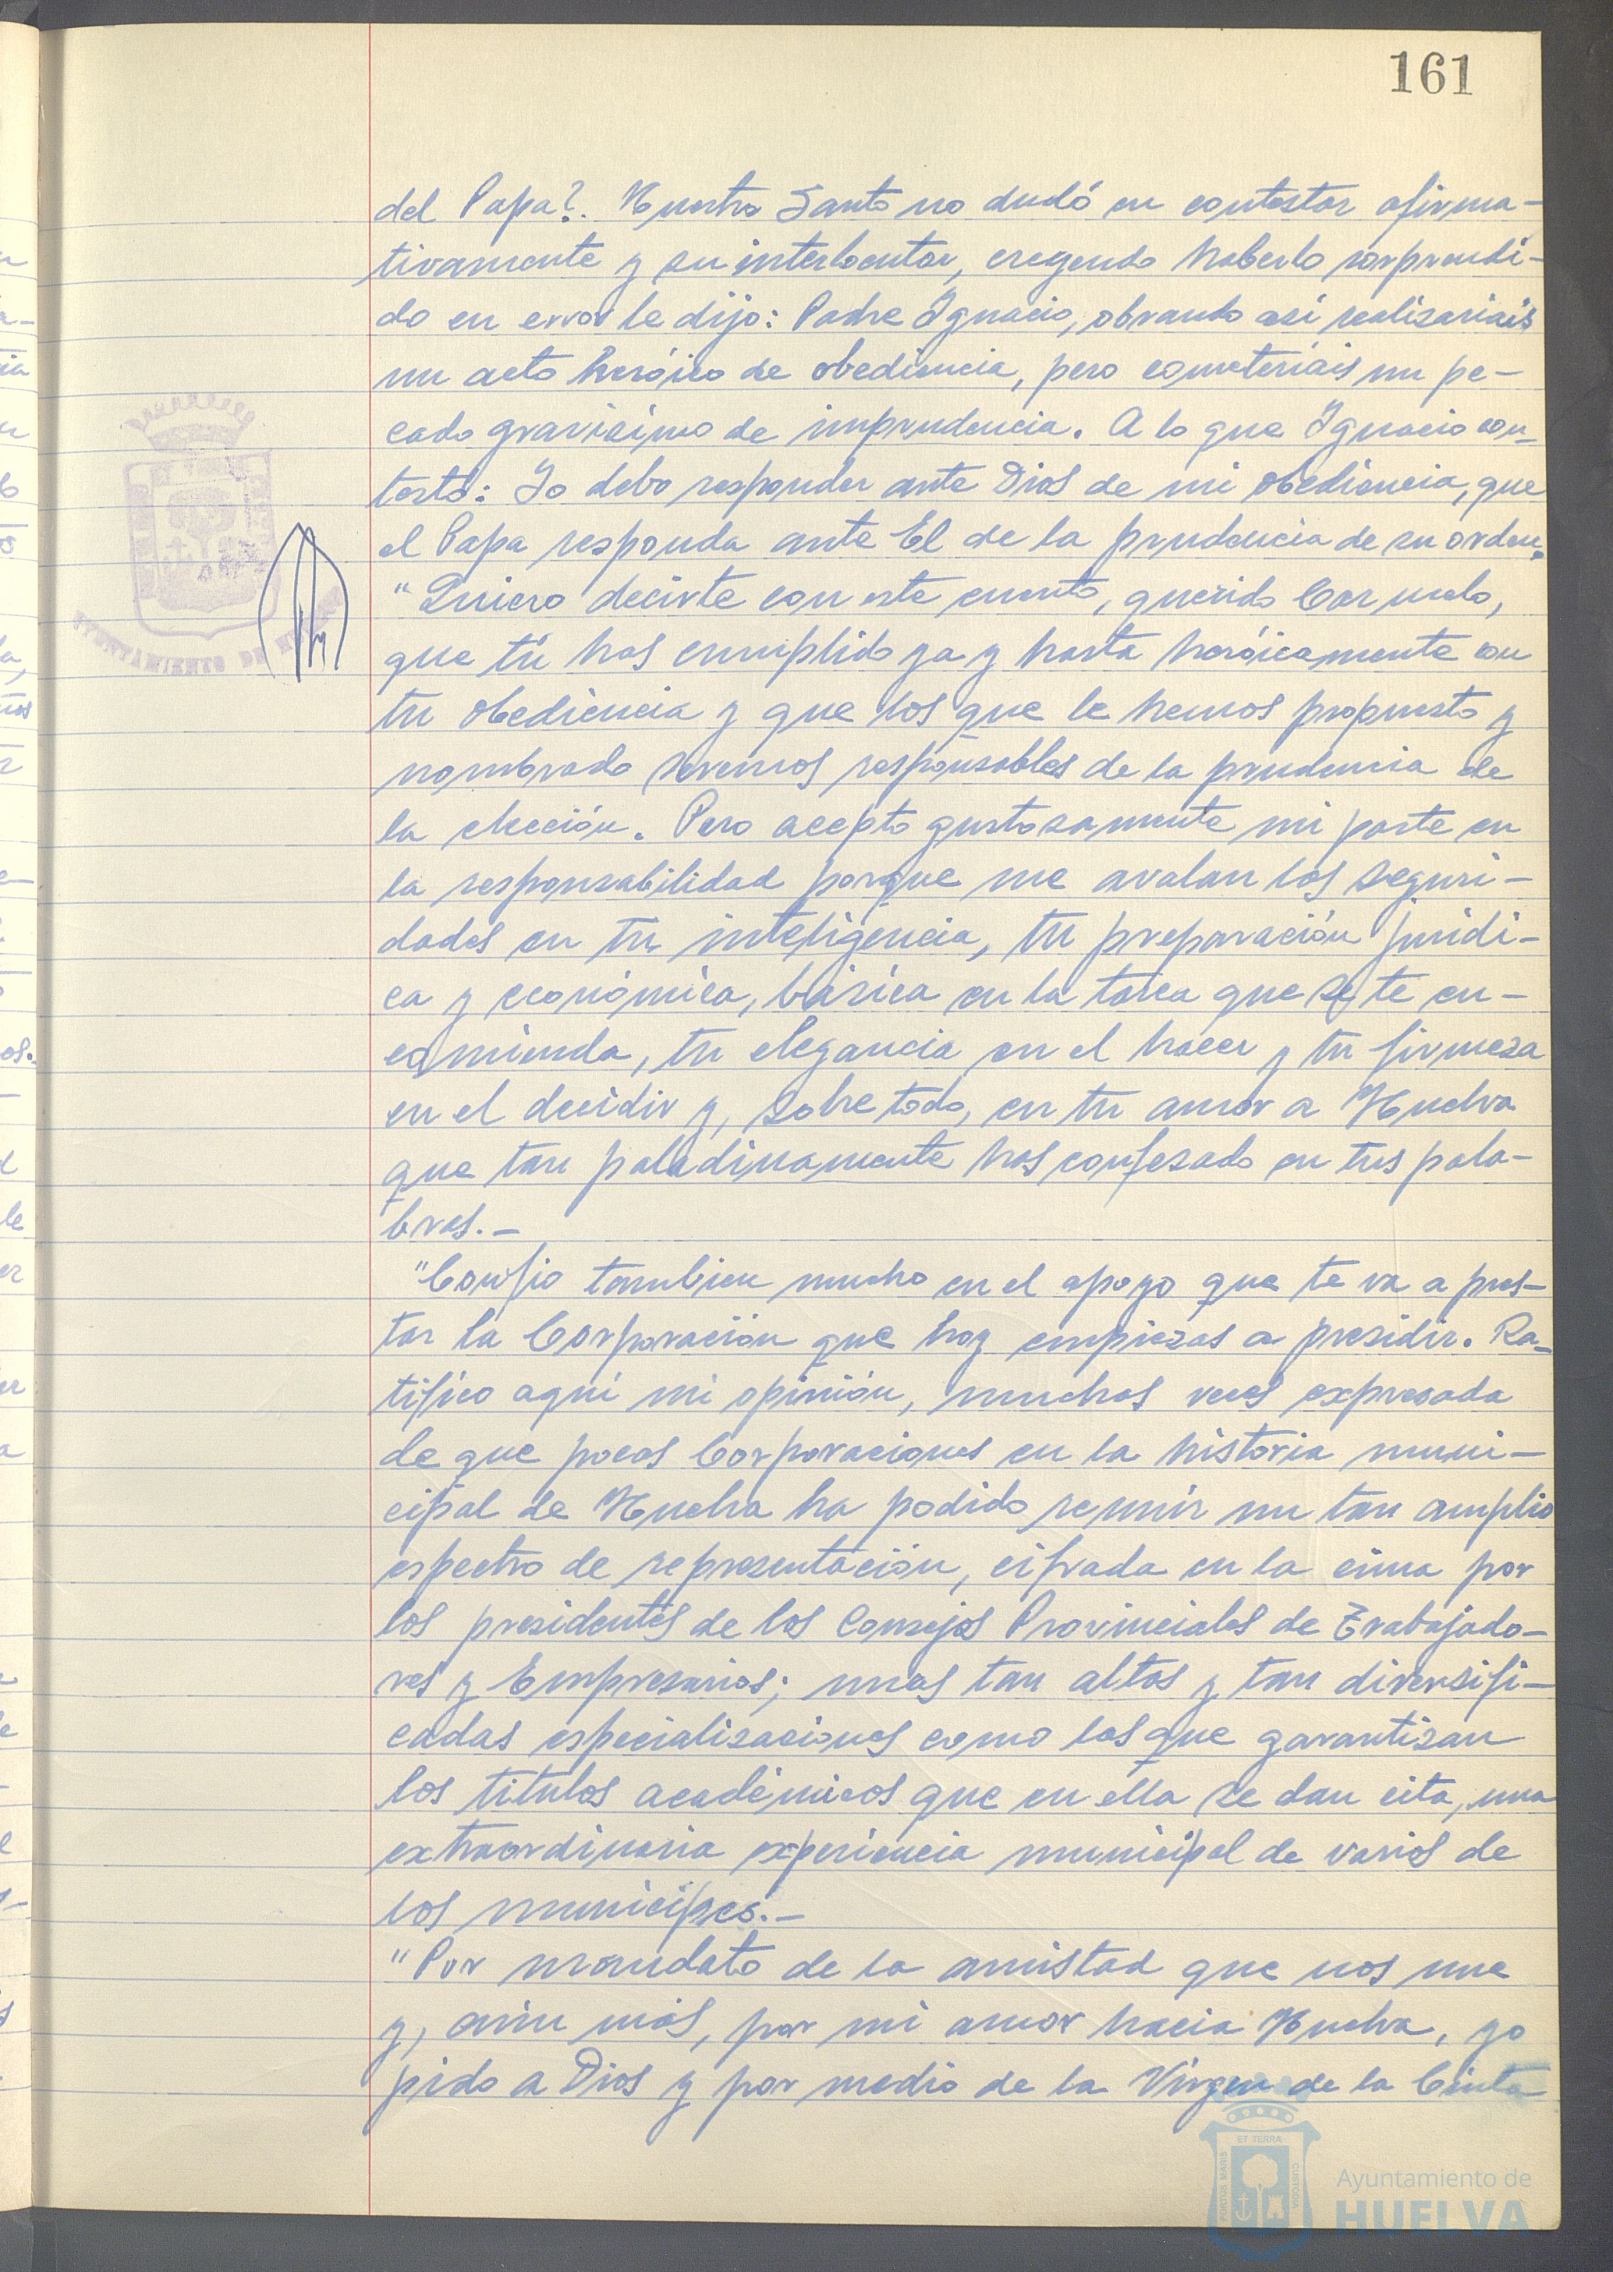 161
del Papa?. Nuestro Santo no dudó en contestar afirma-
tivamente y su interlocutor, creyendo haberlo sorprendi-
do en error le dijo: Padre Ignacio, obrando así realizariais
un acto heróico de obediencia, pero cometeríais un pe-
cado gravisimo de imprudencia. A lo que Ignacio con-
testó: Yo debo responder ante Dios de mi obediencia, que
el Papa responda ante El de la prudencia de su orden.
"Quiero decirte con este cuento, querido Carmelo,
que tú has cumplido ya y hasta heróicamente con
tu obediencia y que los que le hemos propuesto y
nombrado seremos responsables de la prudencia de
la elección. Pero acepto gustosamente mi parte en
la responsabilidad porque me avalan las seguri-
dades en tu inteligencia, tu preparación juridi-
ca y económica, básica en la tarea que se te en-
comienda, tu elegancia en el hacer y tu firmeza
en el decidir y, sobre todo, en tu amor a Huelva
que tan paladinamente has confesado en tus pala-
bras.-
"Confio tambien mucho en el apoyo que te va a pres-
tar la Corporación que hoy empiezas a presidir. Ra-
tifico aquí mi opinión, muchas veces expresada
de que pocas Corporaciones en la historia muni-
cipal de Huelva ha podido reunir un tan amplio
espectro de representación, cifrada en la cima por
los presidentes de los Consejos Provinciales de Trabajado-
res y Empresarios; unas tan altas y tan diversifi-
cadas especializaciones como las que garantizan
los titulos académicos que en ella se dan cita, una
extraordinaria experiencia municipal de varios de
los municipes.-
"Por mandato de la amistad que nos une
y, aún más, por mi amor hacia Huelva, yo
pido a Dios y por medio de la Virgen de la Cinta
AYUNTAMIENTO DE HUELVA
PORTUS MARIS
ET TERRA
CUSTODIA
Ayuntamiento de
HUELVA